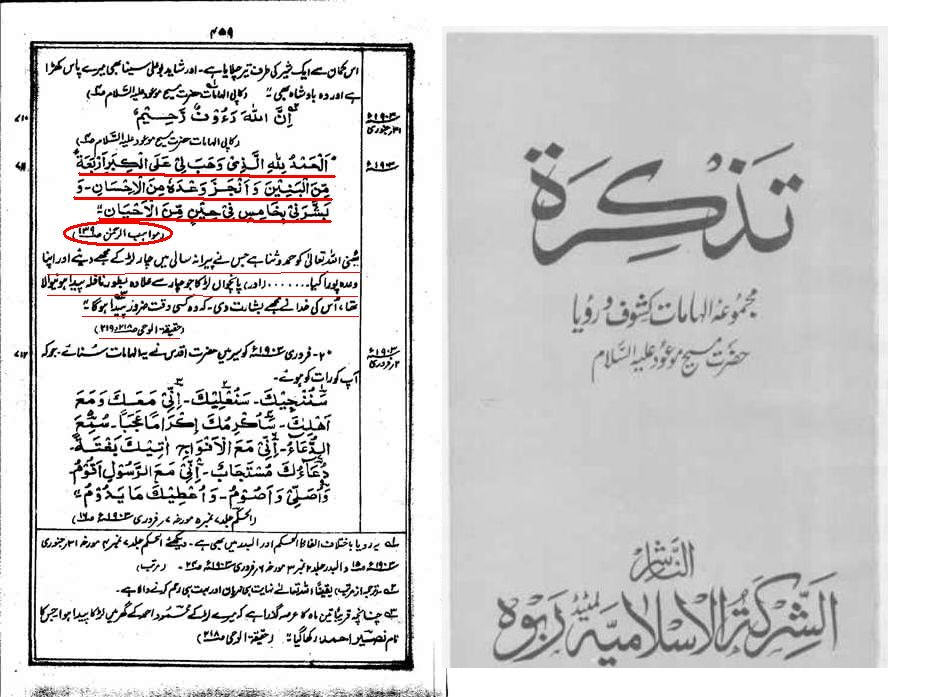 ۴۵۹
اس کمان سے ایک شیر کی طرف تیر چلایا ہے۔ اور شاید بوعلی سینا بھی میرے پاس کھڑا
ہے اور وہ بادشاہ بھی۔" (کاپی الہامات حضرت مسیح موعود علیہ السلام ص)
۱۹۰۳ء
۳۱ جنوری
۷۱۰
اِنَّ اللّٰهَ رَءُوْفٌ رَّحِيْمٌ"
(کاپی الہامات حضرت مسیح موعود علیہ السلام ص)
۱۹۰۳ء
"اَلْحَمْدُ لِلّٰهِ الَّذِيْ وَهَبَ لِيْ عَلَى الْكِبَرِ اَرْبَعَةً
مِّنَ الْبَنِيْنَ وَاَنْجَزَ وَعْدَهٗ مِنَ الْاِحْسَانِ۔ وَ
بَشَّرَنِيْ بِخَامِسٍ فِيْ حِيْنٍ مِّنَ الْاَحْيَانِ"
(مواہب الرحمٰن ص ۱۳۹)
یعنی اللہ تعالیٰ کو حمد و ثنا ہے جس نے پیرانہ سالی میں چار لڑکے مجھے دیئے اور اپنا
وعدہ پورا کیا۔۔۔۔۔۔۔ (اور) پانچواں لڑکا جو چار سے علاوہ بطور نافلہ پیدا ہونیوالا
تھا، اُس کی خدا نے مجھے بشارت دی۔ کہ وہ کسی وقت ضرور پیدا ہوگا"
(حقیقۃ الوحی ص ۲۱۸، ۲۱۹)
۱۹۰۳ء
۲ فروری
۷۱۲
"۲۔ فروری ۱۹۰۳ء کو سیر میں حضرت اقدس نے یہ الہامات سنائے۔ جو کہ
آپ کو رات کو ہوئے۔
سَنُنْجِيْكَ۔ سَنُعْلِيْكَ۔ اِنِّيْ مَعَكَ وَمَعَ
اَهْلِكَ۔ سَاُكْرِمُكَ اِكْرَامًا عَجَبًا۔ سُمِعَ
الدُّعَاءُ۔ اِنِّيْ مَعَ الْاَفْوَاجِ اٰتِيْكَ بَغْتَةً۔
دُعَاءُكَ مُسْتَجَابٌ۔ اِنِّيْ مَعَ الرَّسُوْلِ اَقُوْمُ
وَاُصَلِّيْ وَاَصُوْمُ۔ وَاُعْطِيْكَ مَا يَدُوْمُ"
(الحکم جلد ۷ نمبر ۵ مورخہ ۷ فروری ۱۹۰۳ء ص ۱۶)
۱؎ یہ رویا باختلاف الفاظ الحکم اور البدر میں بھی ہے۔ دیکھئے الحکم جلد ۷ نمبر ۴ مورخہ ۳۱ جنوری
۱۹۰۳ء ص ۱۵ والبدر جلد ۲ نمبر ۳ مورخہ ۶ فروری ۱۹۰۳ء ص ۲۳۔ (مرتب)
۲؎ (ترجمہ از مرتب) یقیناً اللہ تعالیٰ نہایت ہی مہربان اور بہت ہی رحم کرنے والا ہے۔
۳؎ چنانچہ قریباً تین ماہ کا عرصہ گذرا ہے کہ میرے لڑکے محمود احمد کے گھر میں لڑکا پیدا ہوا جس کا
نام نصیر احمد رکھا گیا" (حقیقۃ الوحی ص ۲۱۸)
تذکرۃ
مجموعہ الہامات کشوف و رؤیا
حضرت مسیح موعود علیہ السلام
الناشر
الشركة الاسلامية لمیٹڈ ربوہ